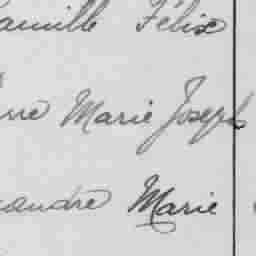 amille Félix
rre Marie Joseph
andre Marie